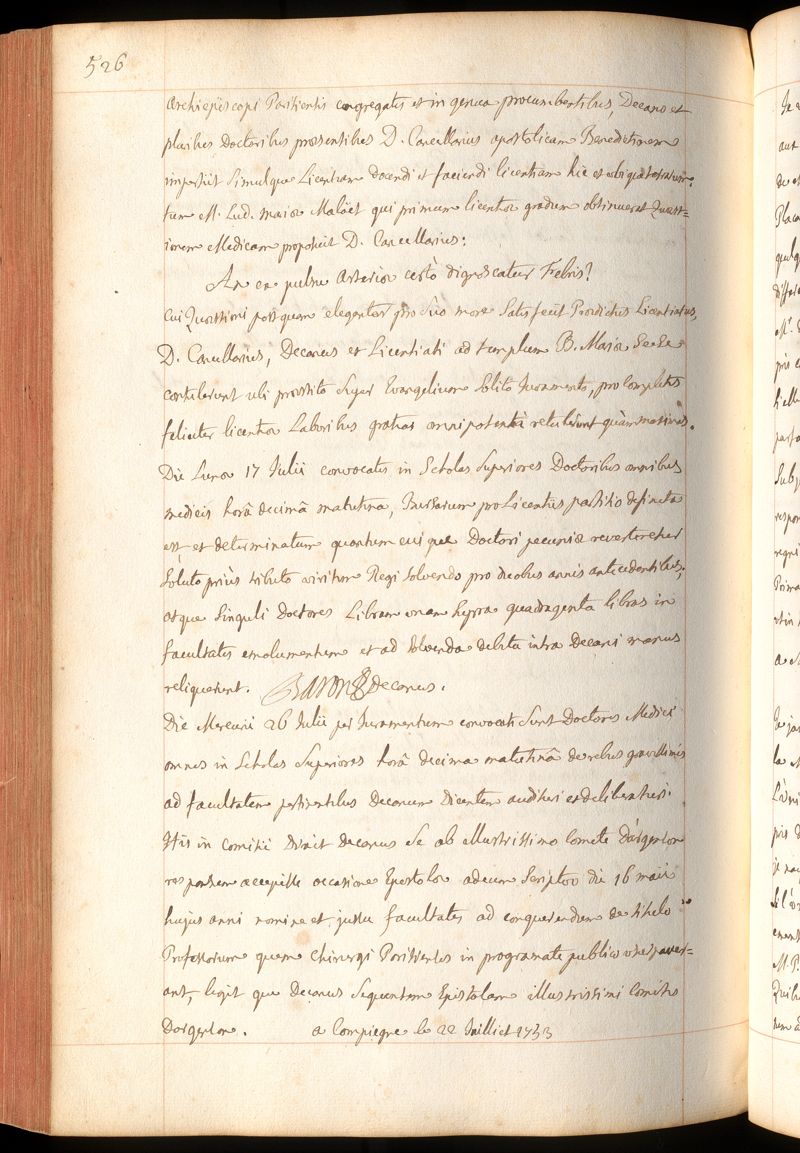 526
Archiepiscopi Parisiensis congregatis et in genua procumbentibus, Decano et
pluribus Doctoribus præsentibus D. Cancellarius apostolicam Benedictionem
impertiit simulque Licentiam docendi et faciendi licentiam hic et ubique terrarum.
tum M. Lud. maria Maloët qui primum licentiæ gradum obtinuerat Quæst=
ionem Medicam proposuit D. Cancellarius:
An ex pulsu Arteriæ certò dignoscatur Febris?
Cui Quæstioni postquam eleganter pro suo more satisfecit Prædictus Licentiatus,
D. Cancellarius, Decanus et Licentiati ad templum B. Mariæ sese
contulerunt ubi præstito super Evangelium solito Juramento, pro completis
feliciter licentiæ Laboribus gratias omnipotenti retulerunt quàm maximas.
Die Lunæ 17 Julii convocatis in Scholas Superiores Doctoribus omnibus
medicis horâ decimâ matutina, Bursarum pro Licentiis partitio definita
est, et determinatum quantum cuique Doctori pecuniæ reverteretur
soluto priùs tributo viritim Regi solvendo pro duobus annis antecedentibus;
atque singuli Doctores Libram unam supra quadraginta libras in
facultatis emolumentum et ad solvenda debita intra Decani manus
reliquerunt. BARON Decanus.
Die Mercurii 26 Julii per Juramentum convocati sunt Doctores Medici
omnes in Scholas Superiores horâ decima matutinâ de rebus gravissimis
ad facultatem pertinentibus Decanum Dicentem audituri et deliberaturi.
His in comitiis Dixit Decanus se ab illustrissimo Comite D'argenson
responsum accepisse occasione Epistolæ ad eum Scriptæ die 16 maii
hujus anni nomine et jussu facultatis ad conquerendum de titulo
Professorum quem Chirurgi Parisienses in programate publico usurpaver=
ant, legit que Decanus Sequentem Epistolam illustrissimi Comitis
Dargenson. a Compiegne le 22 Juillet 1753